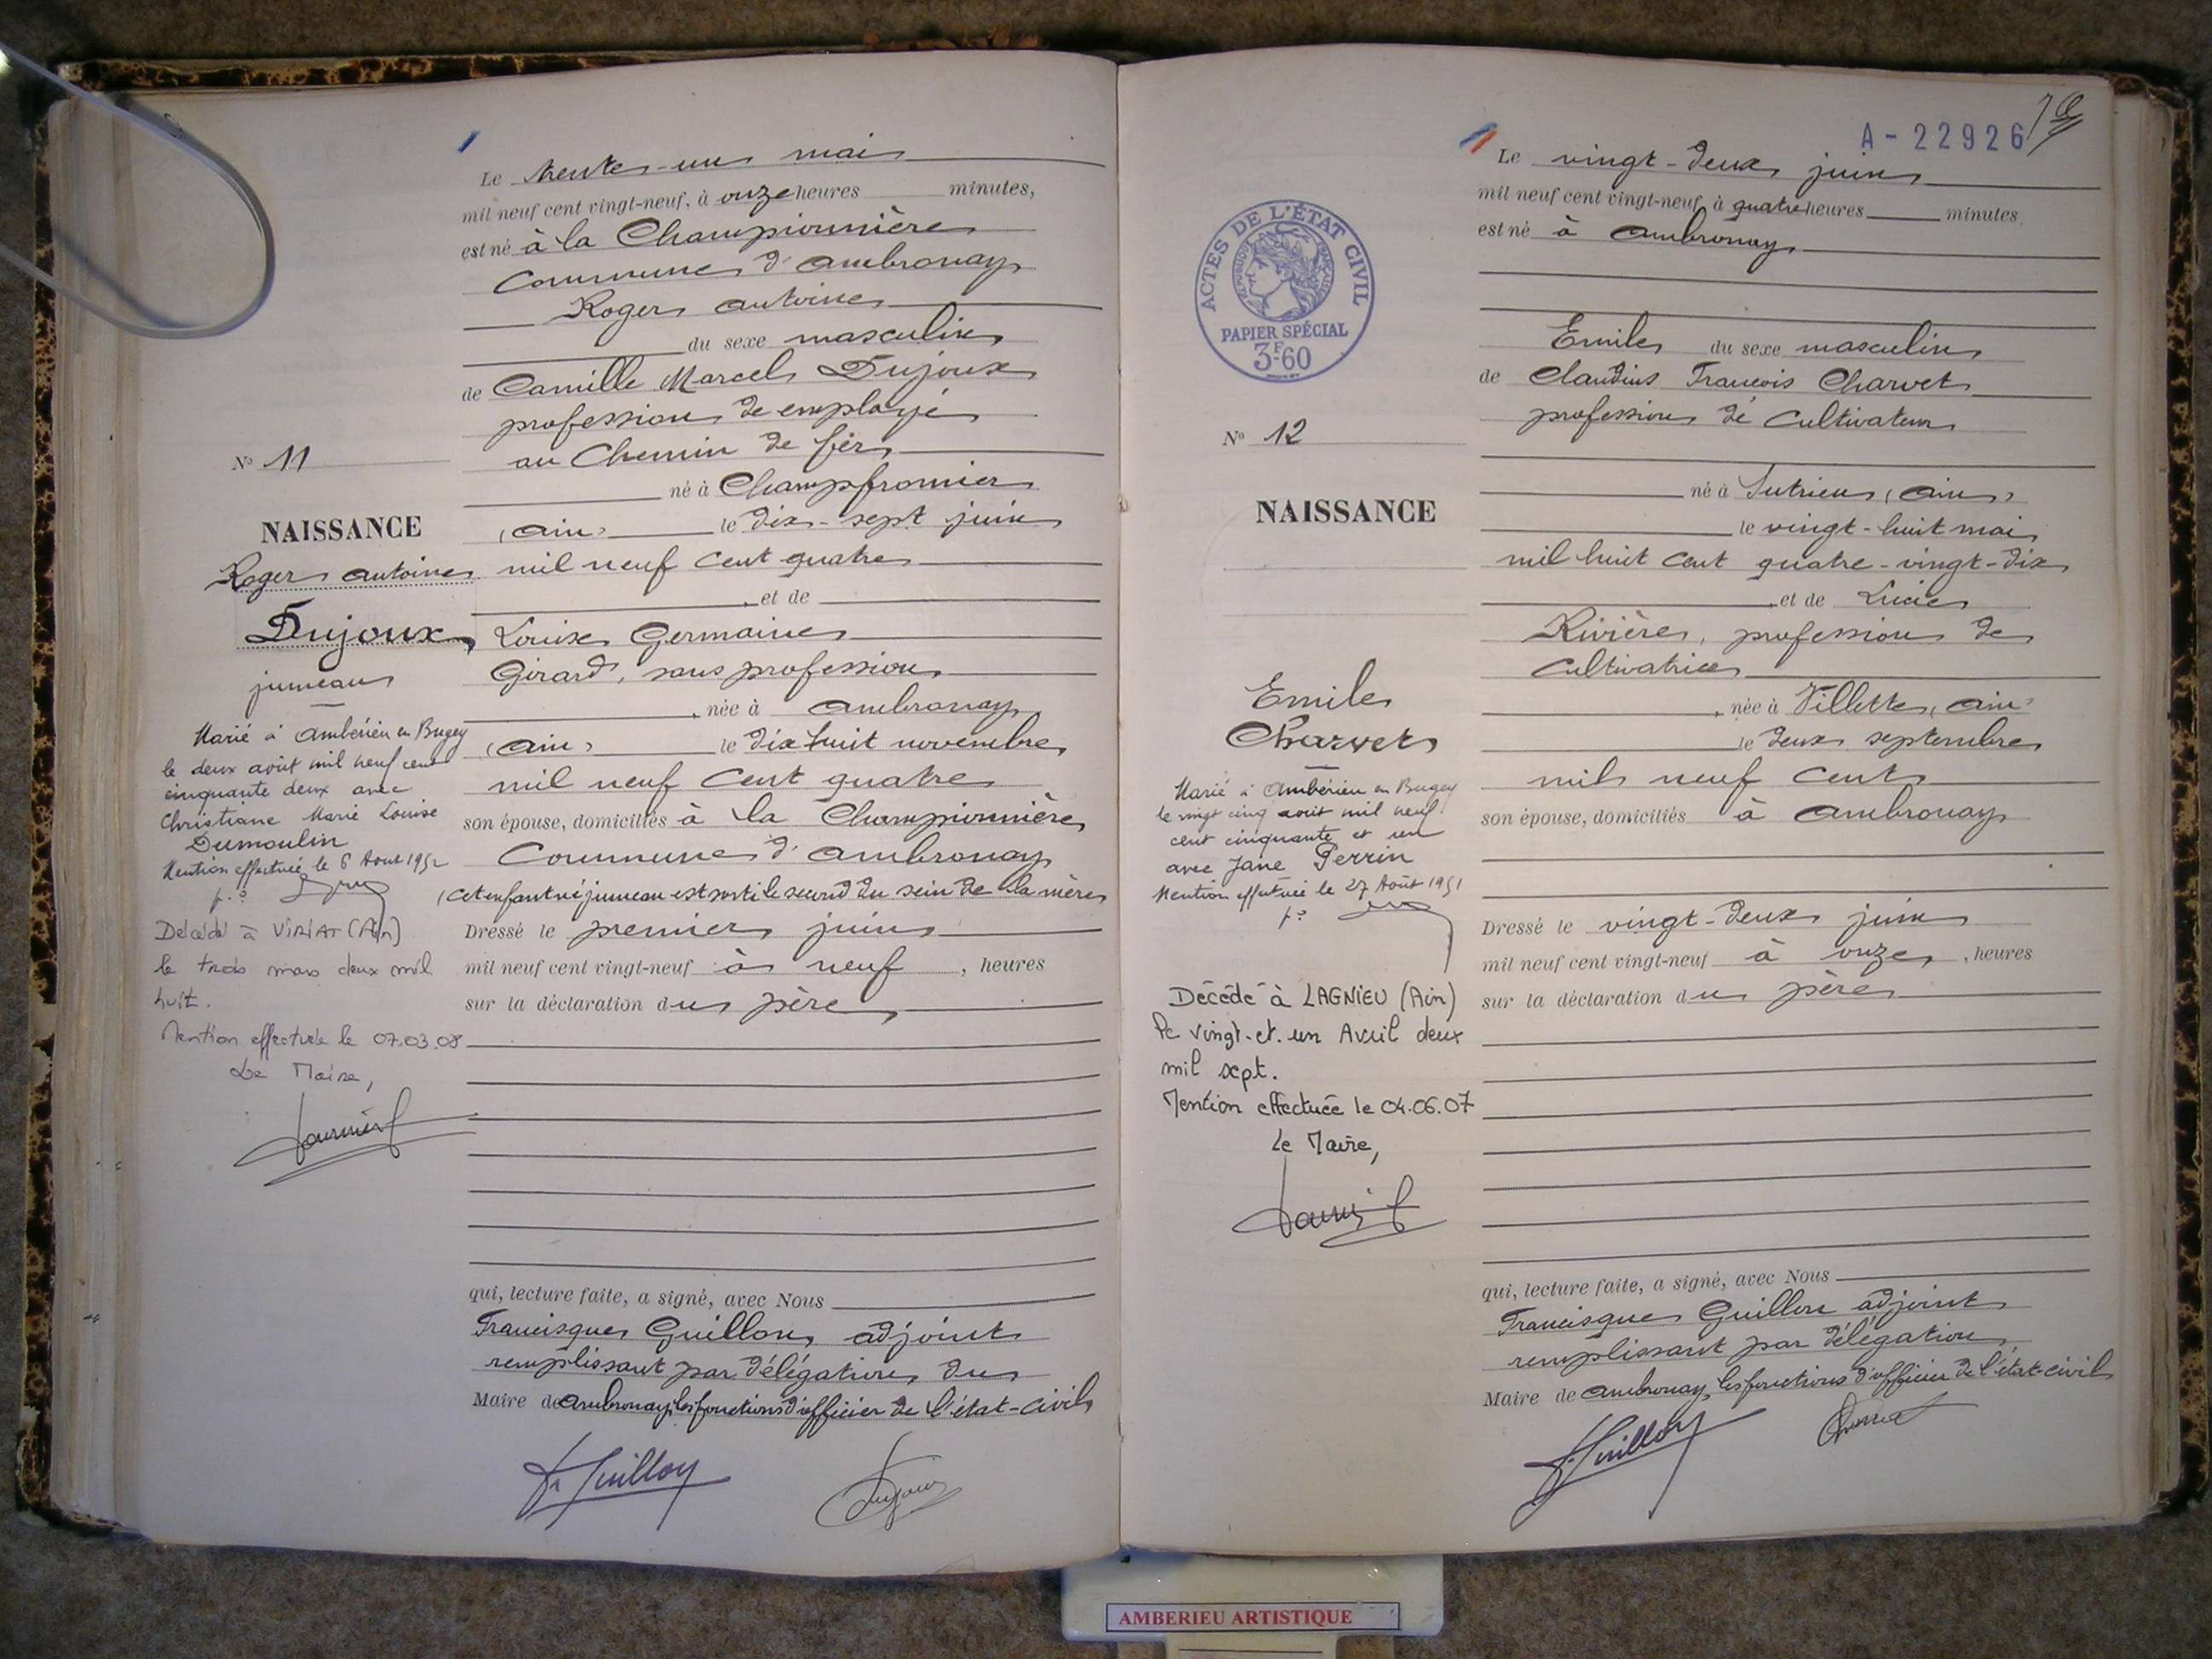 Le trente-un mai
mil neuf cent vingt-neuf, à onze heures minutes,
est né à la Championnière
Commune d'Ambronay
Roger Antoine
du sexe masculin
de Camille Marcel Dujoux
profession de employé
au Chemin de fer
né à Champfromier
(Ain) le dix-sept juin
mil neuf cent quatre
et de
Louise Germaine
Girard, sans profession
, née à Ambronay
(Ain) le dix huit novembre
mil neuf cent quatre
son épouse, domiciliés à la Championnière
Commune d'Ambronay
(cet enfant né jumeau est sorti le second du sein de la mère
Dressé le premier juin
mil neuf cent vingt-neuf à neuf , heures
sur la déclaration du père
qui, lecture faite, a signé, avec Nous
Francisque Guillon, adjoint
remplissant par délégation du
Maire de Ambronay, les fonctions d'officier de l'état-civil
F. Guillon
Dujoux
N° 11
NAISSANCE
Roger Antoine
Dujoux
jumeau
Marié à Ambérieu en Bugey
le deux août mil neuf cent
cinquante deux avec
Christiane Marie Louise
Dumoulin
Mention effectuée le 6 Aout 1952
p.o
Décédé à VIRIAT (Ain)
le trois mars deux mil
huit.
Mention effectuée le 07.03.08
Le Maire,
A-22926
Le vingt-deux juin
mil neuf cent vingt-neuf, à quatre heures minutes
est né à Ambronay
Emile du sexe masculin
de Claudius François Charvet
profession de cultivateur
né à Jutrieu (Ain)
le vingt-huit mai
mil huit cent quatre-vingt-dix
et de Lucie
Rivière, profession de
cultivatrice
, née à Villette (Ain)
le deux septembre
mil neuf cent
son épouse, domiciliés à Ambronay
Dressé le vingt-deux juin
mil neuf cent vingt-neuf à onze , heures
sur la déclaration du père
qui, lecture faite, a signé, avec Nous
Francisque Guillon adjoint
remplissant par délégation
Maire de Ambronay, les fonctions d'officier de l'état-civil
F. Guillon
Charvet
ACTES DE L'ÉTAT CIVIL
RÉPUBLIQUE FRANÇAISE
PAPIER SPÉCIAL
3F60
N° 12
NAISSANCE
Emile
Charvet
Marié à Ambérieu en Bugey
le vingt cinq août mil neuf
cent cinquante et un
avec Jane Perrin
Mention effectuée le 27 Août 1951
p.o
Décédé à LAGNIEU (Ain)
le vingt-et-un Avril deux
mil sept.
Mention effectuée le 04.06.07
Le Maire,
AMBERIEU ARTISTIQUE